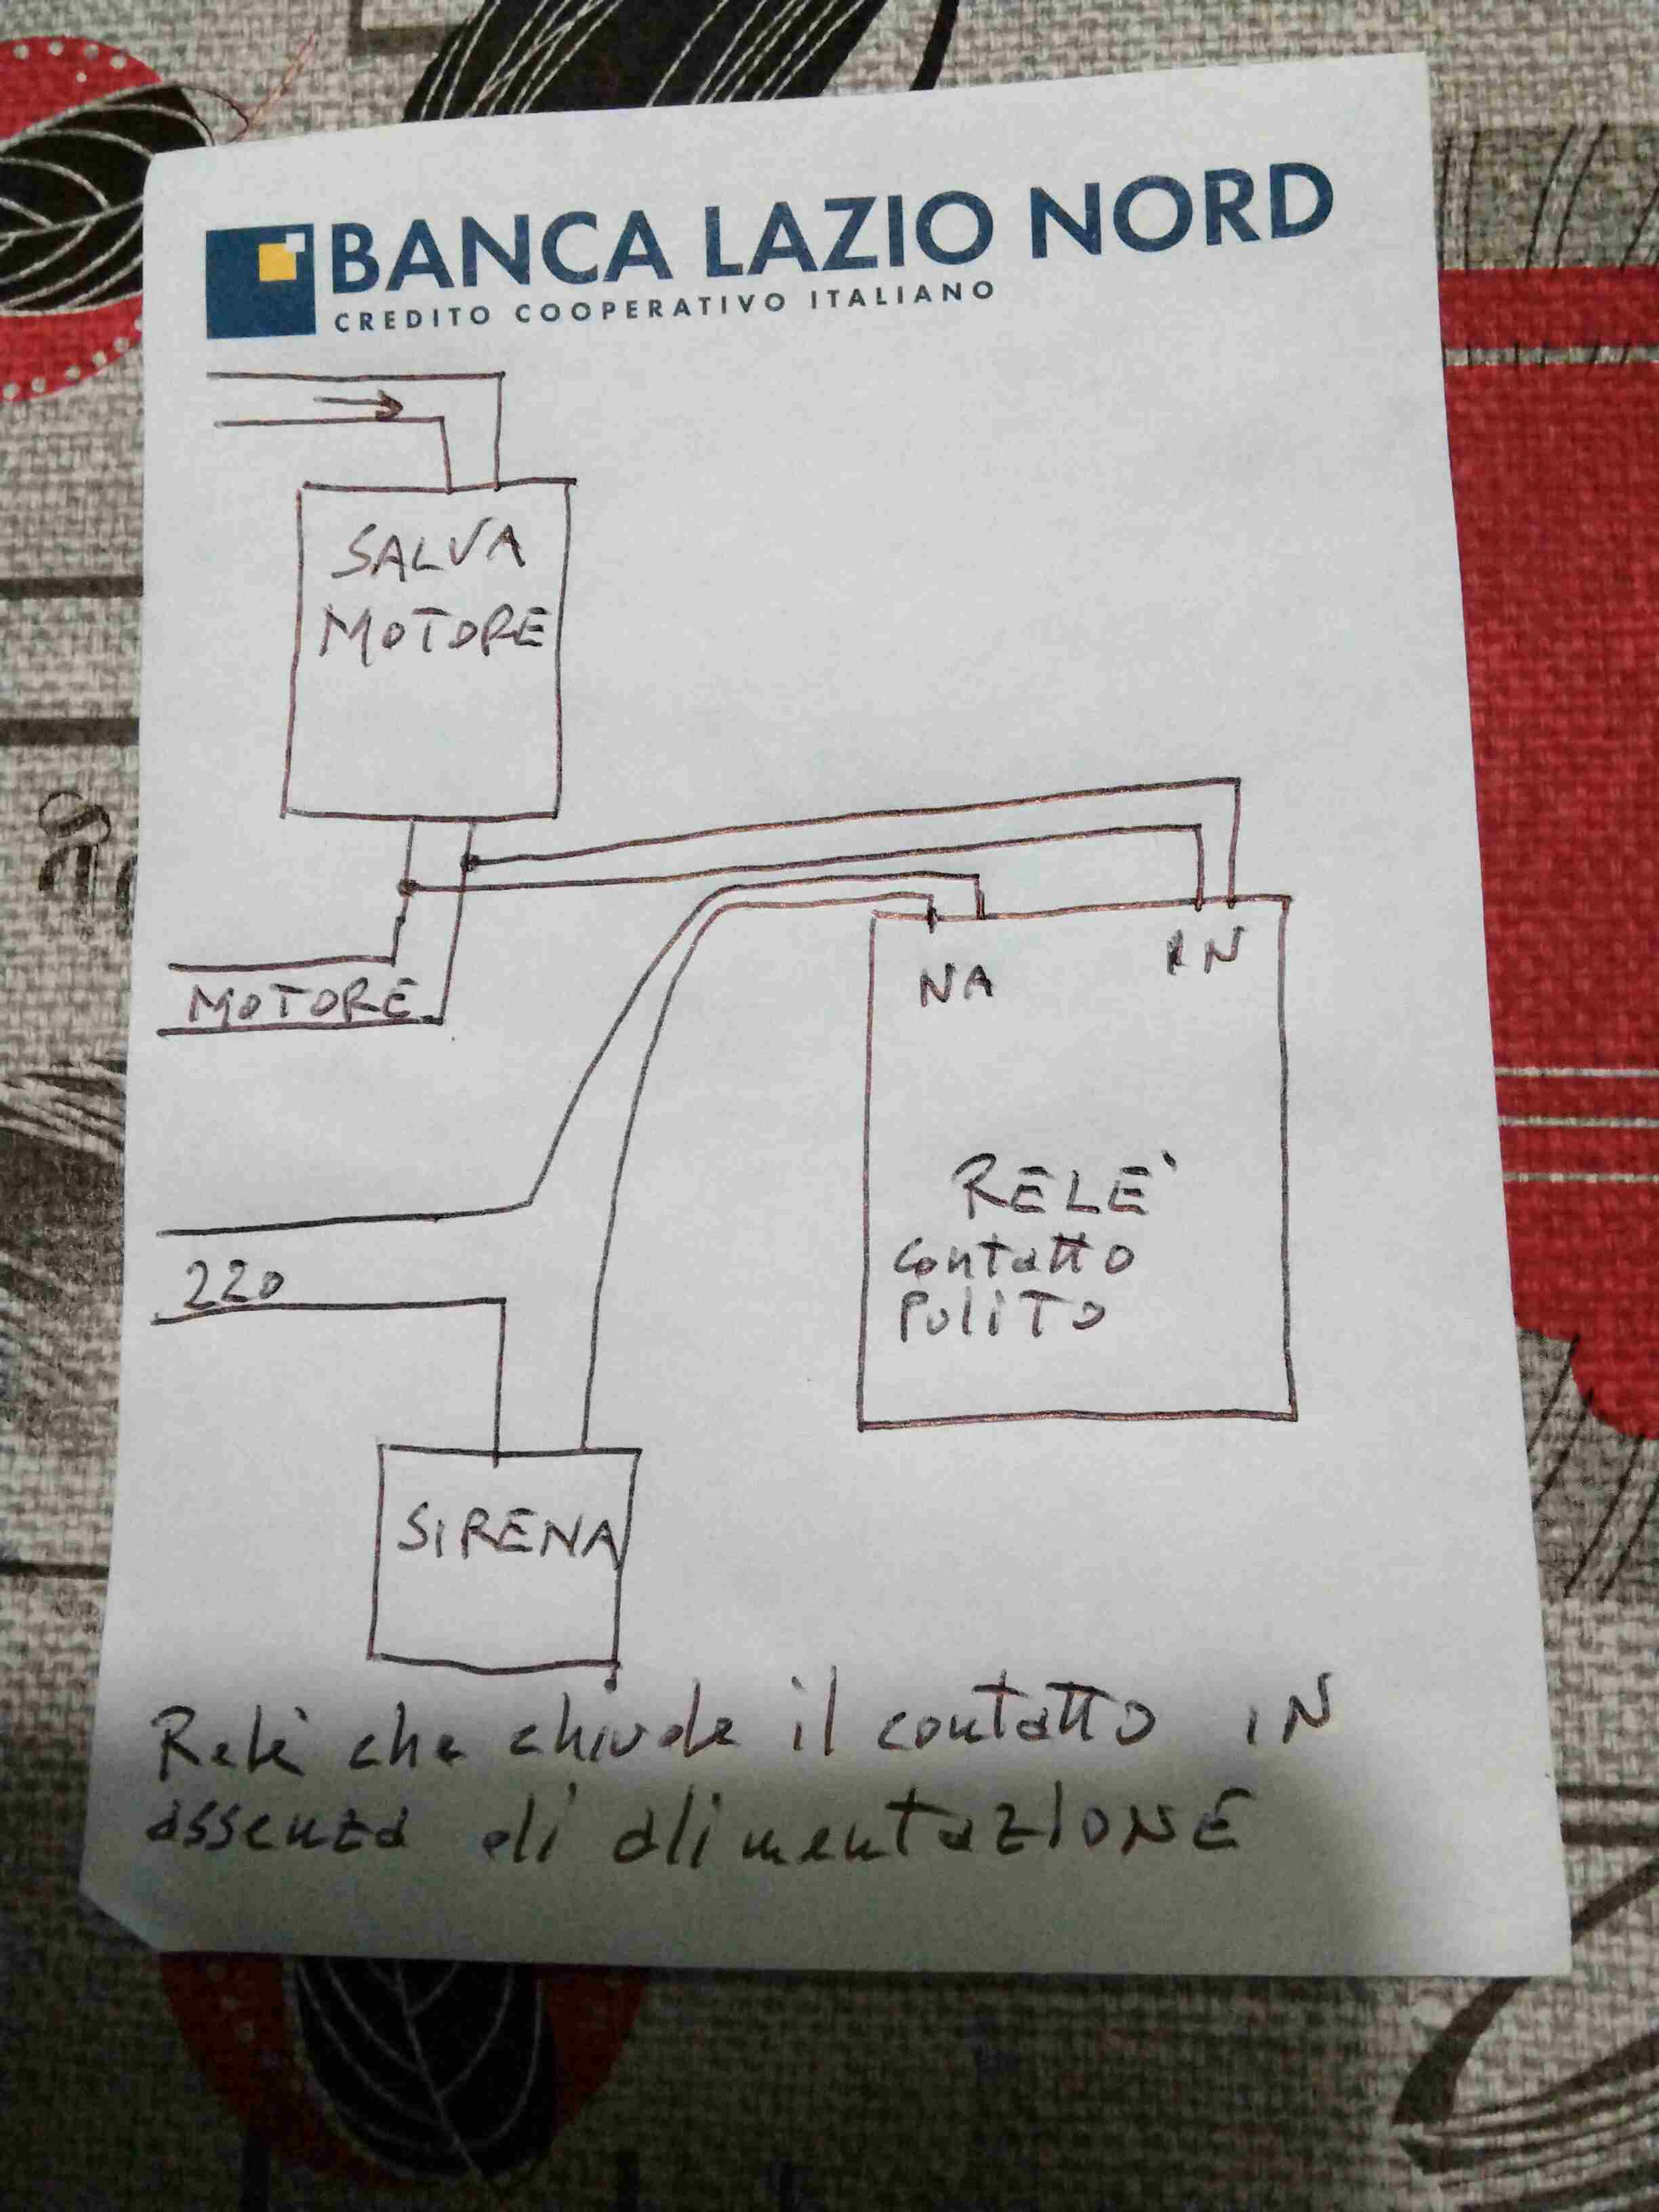 BANCA LAZIO NORD
CREDITO COOPERATIVO ITALIANO
SALVA
MOTORE
NA
RN
MOTORE
RELE'
contatto
PuliTo
220
SIRENA
Relè che chiude il contatto IN
assenza di alimentazIONE